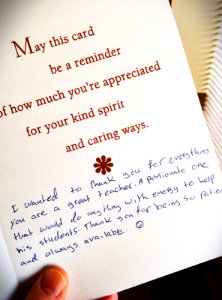 May this card
be a reminder
of how much you're appreciated
for your kind spirit
and caring ways.
I wanted to thank you for everything
you are a great teacher. A passionate one
that would do anything with energy to help
his students. Thank you for being so patien
and always available.